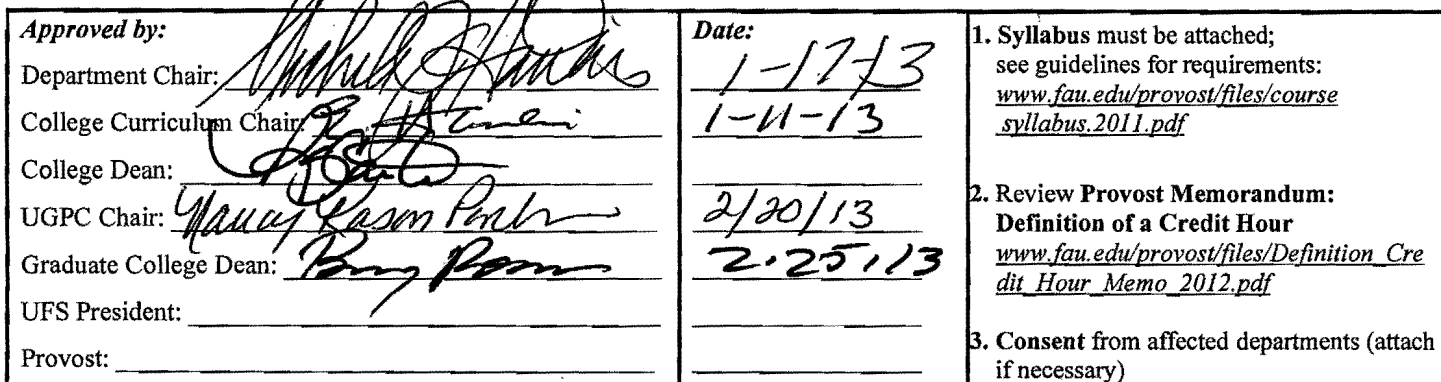 Approved by:
Department Chair:
College Curriculum Chair:
College Dean:
UGPC Chair: Nancy
Graduate College Dean:
UFS President:
Provost:
Date:
1-17-13
1-11-13
2/20/13
2.25.13
1. Syllabus must be attached;
see guidelines for requirements:
www.fau.edu/provost/files/course
_syllabus.2011.pdf
2. Review Provost Memorandum:
Definition of a Credit Hour
www.fau.edu/provost/files/Definition_Cre
dit_Hour_Memo_2012.pdf
3. Consent from affected departments (attach
if necessary)